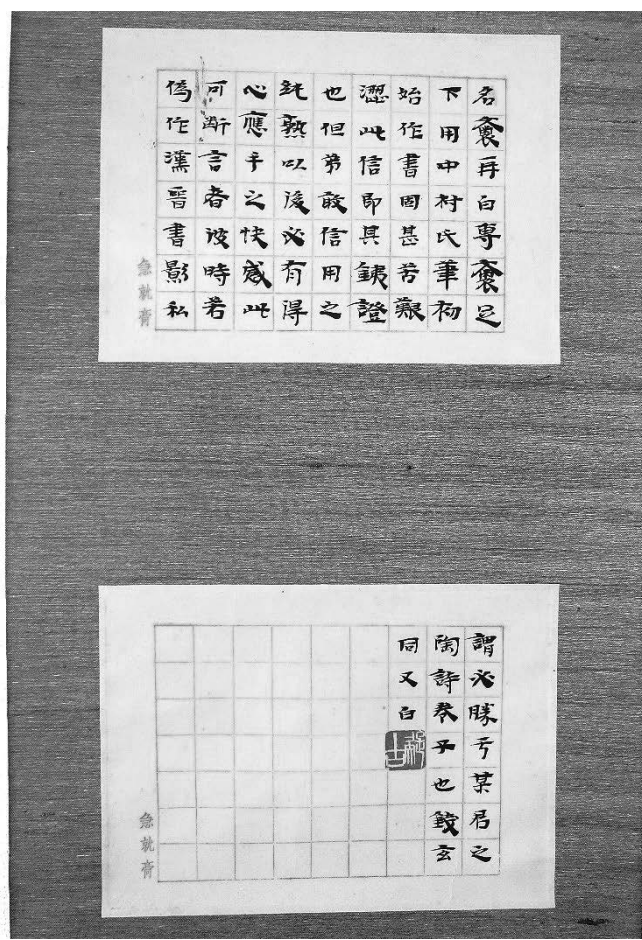 名齋再白專齋足
下用中村氏筆初
始作書固甚苦艱
澀此信即其銕證
也但弟敢信用之
純熟以後必有得
心應手之快感此
可斷言者彼時若
僞作漢晉書影私
急就齋
謂必勝亏某君之
陶詩卷子也錢玄
同又白
疑古
急就齋